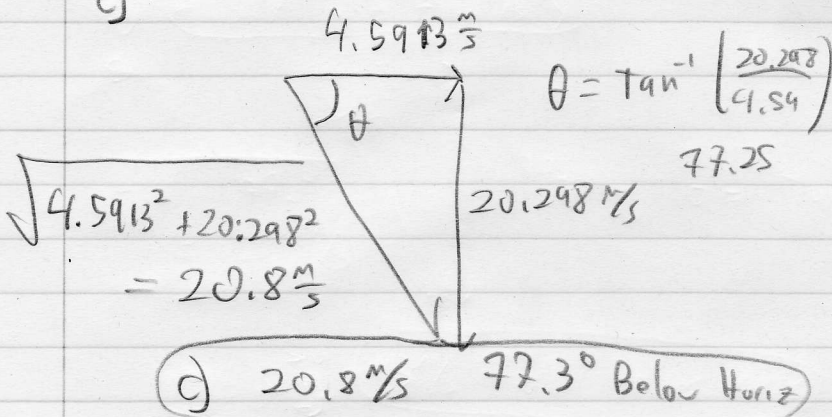 c)
4.5913 m/s
θ = Tan⁻¹ (20.298/4.59)
θ
77.25
√4.5913² + 20.298²
20.298 m/s
= 20.8 m/s
c) 20.8 m/s 77.3° Below Horiz